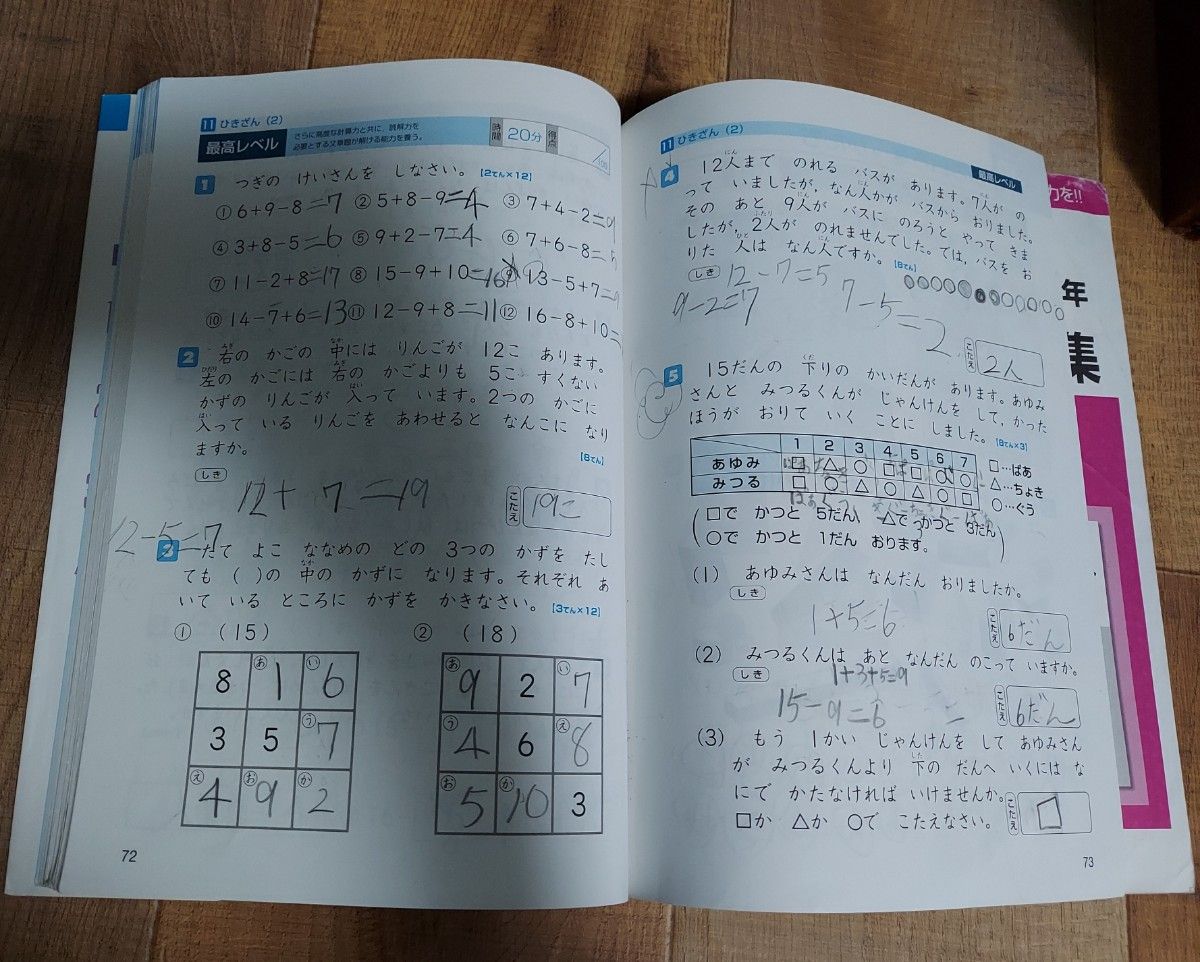 11 ひきざん(2)
最高レベル
さらに高度な計算力と共に、読解力を
必要とする文章題が解ける能力を養う。
時間 20分 得点 /100
1 つぎの けいさんを しなさい。【2てん×12】
① 6+9-8=7 ② 5+8-9=4 ③ 7+4-2=9
④ 3+8-5=6 ⑤ 9+2-7=4 ⑥ 7+6-8=5
⑦ 11-2+8=17 ⑧ 15-9+10=16 ⑨ 13-5+7=
⑩ 14-7+6=13 ⑪ 12-9+8=11 ⑫ 16-8+10=
2 右の かごの 中には りんごが 12こ あります。
左の かごには 右の かごよりも 5こ すくない
かずの りんごが 入って います。2つの かごに
入って いる りんごを あわせると なんこに なり
ますか。
【8てん】
しき
12+7=19
こたえ 19こ
12-5=7
3 たて よこ ななめの どの 3つの かずを たし
ても ( )の 中の かずに なります。それぞれ あ
いて いる ところに かずを かきなさい。【3てん×12】
① (15) ② (18)
8 あ 1 い 6
3 5 う 7
え 4 お 9 か 2
あ 9 2 い 7
う 4 6 え 8
お 5 か 10 3
72
11 ひきざん(2)
最高レベル
4 12人まで のれる バスが あります。7人が の
って いましたが、なん人かが バスから おりました。
その あと 9人が バスに のろうと やって きま
したが、2人が のれませんでした。では、バスを お
りた 人は なん人ですか。【8てん】
しき
12-7=5
9-2=7
7-5=2
こたえ 2人
5 15だんの 下りの かいだんが あります。あゆみ
さんと みつるくんが じゃんけんを して、かった
ほうが おりて いく ことに しました。【8てん×3】
1 2 3 4 5 6 7
あゆみ □ △ ○ □ □ ○ ○
みつる □ ○ △ ○ △ ○ □
□…ぱあ
△…ちょき
○…ぐう
□で かつと 5だん、△で かつと 3だん
○で かつと 1だん おります。
(1) あゆみさんは なんだん おりましたか。
しき
1+5=6
こたえ 6だん
(2) みつるくんは あと なんだん のこって いますか。
しき
1+3+5=9
15-9=6 =
こたえ 6だん
(3) もう 1かい じゃんけんを して あゆみさん
が みつるくんより 下の だんへ いくには な
にで かたなければ いけませんか。
□か △か ○で こたえなさい。
こたえ □
73
力を!!
年
集